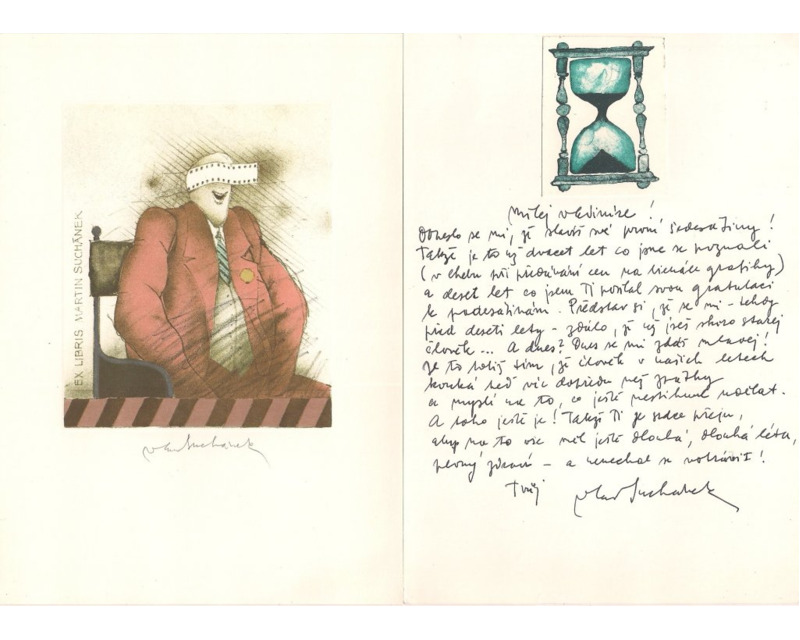 EX LIBRIS MARTIN SUCHÁNEK
Vlad Suchánek
Milej Vladimíre!
Doneslo se mi, že slavíš své první šedesátiny!
Takže je to už dvacet let co jsme se poznali
(v Chebu při předávání cen na bienále grafiky)
a deset let co jsem Ti poslal svou gratulaci
k padesátinám. Představ si, že se mi - tehdy
před deseti lety - zdálo, že už jseš skoro starej
člověk ... A dnes? Dnes se mi zdáš mladej!
Je to tím, že člověk v našich letech
kouká teď víc dopředu než zpátky
a myslí na to, co ještě nestihnul udělat.
A toho ještě je! Takže Ti ze srdce přeju,
abys na to vše měl ještě dlouhá, dlouhá léta,
plný zdraví - a nenechal se votrávit!
Tvůj Vlad Suchánek